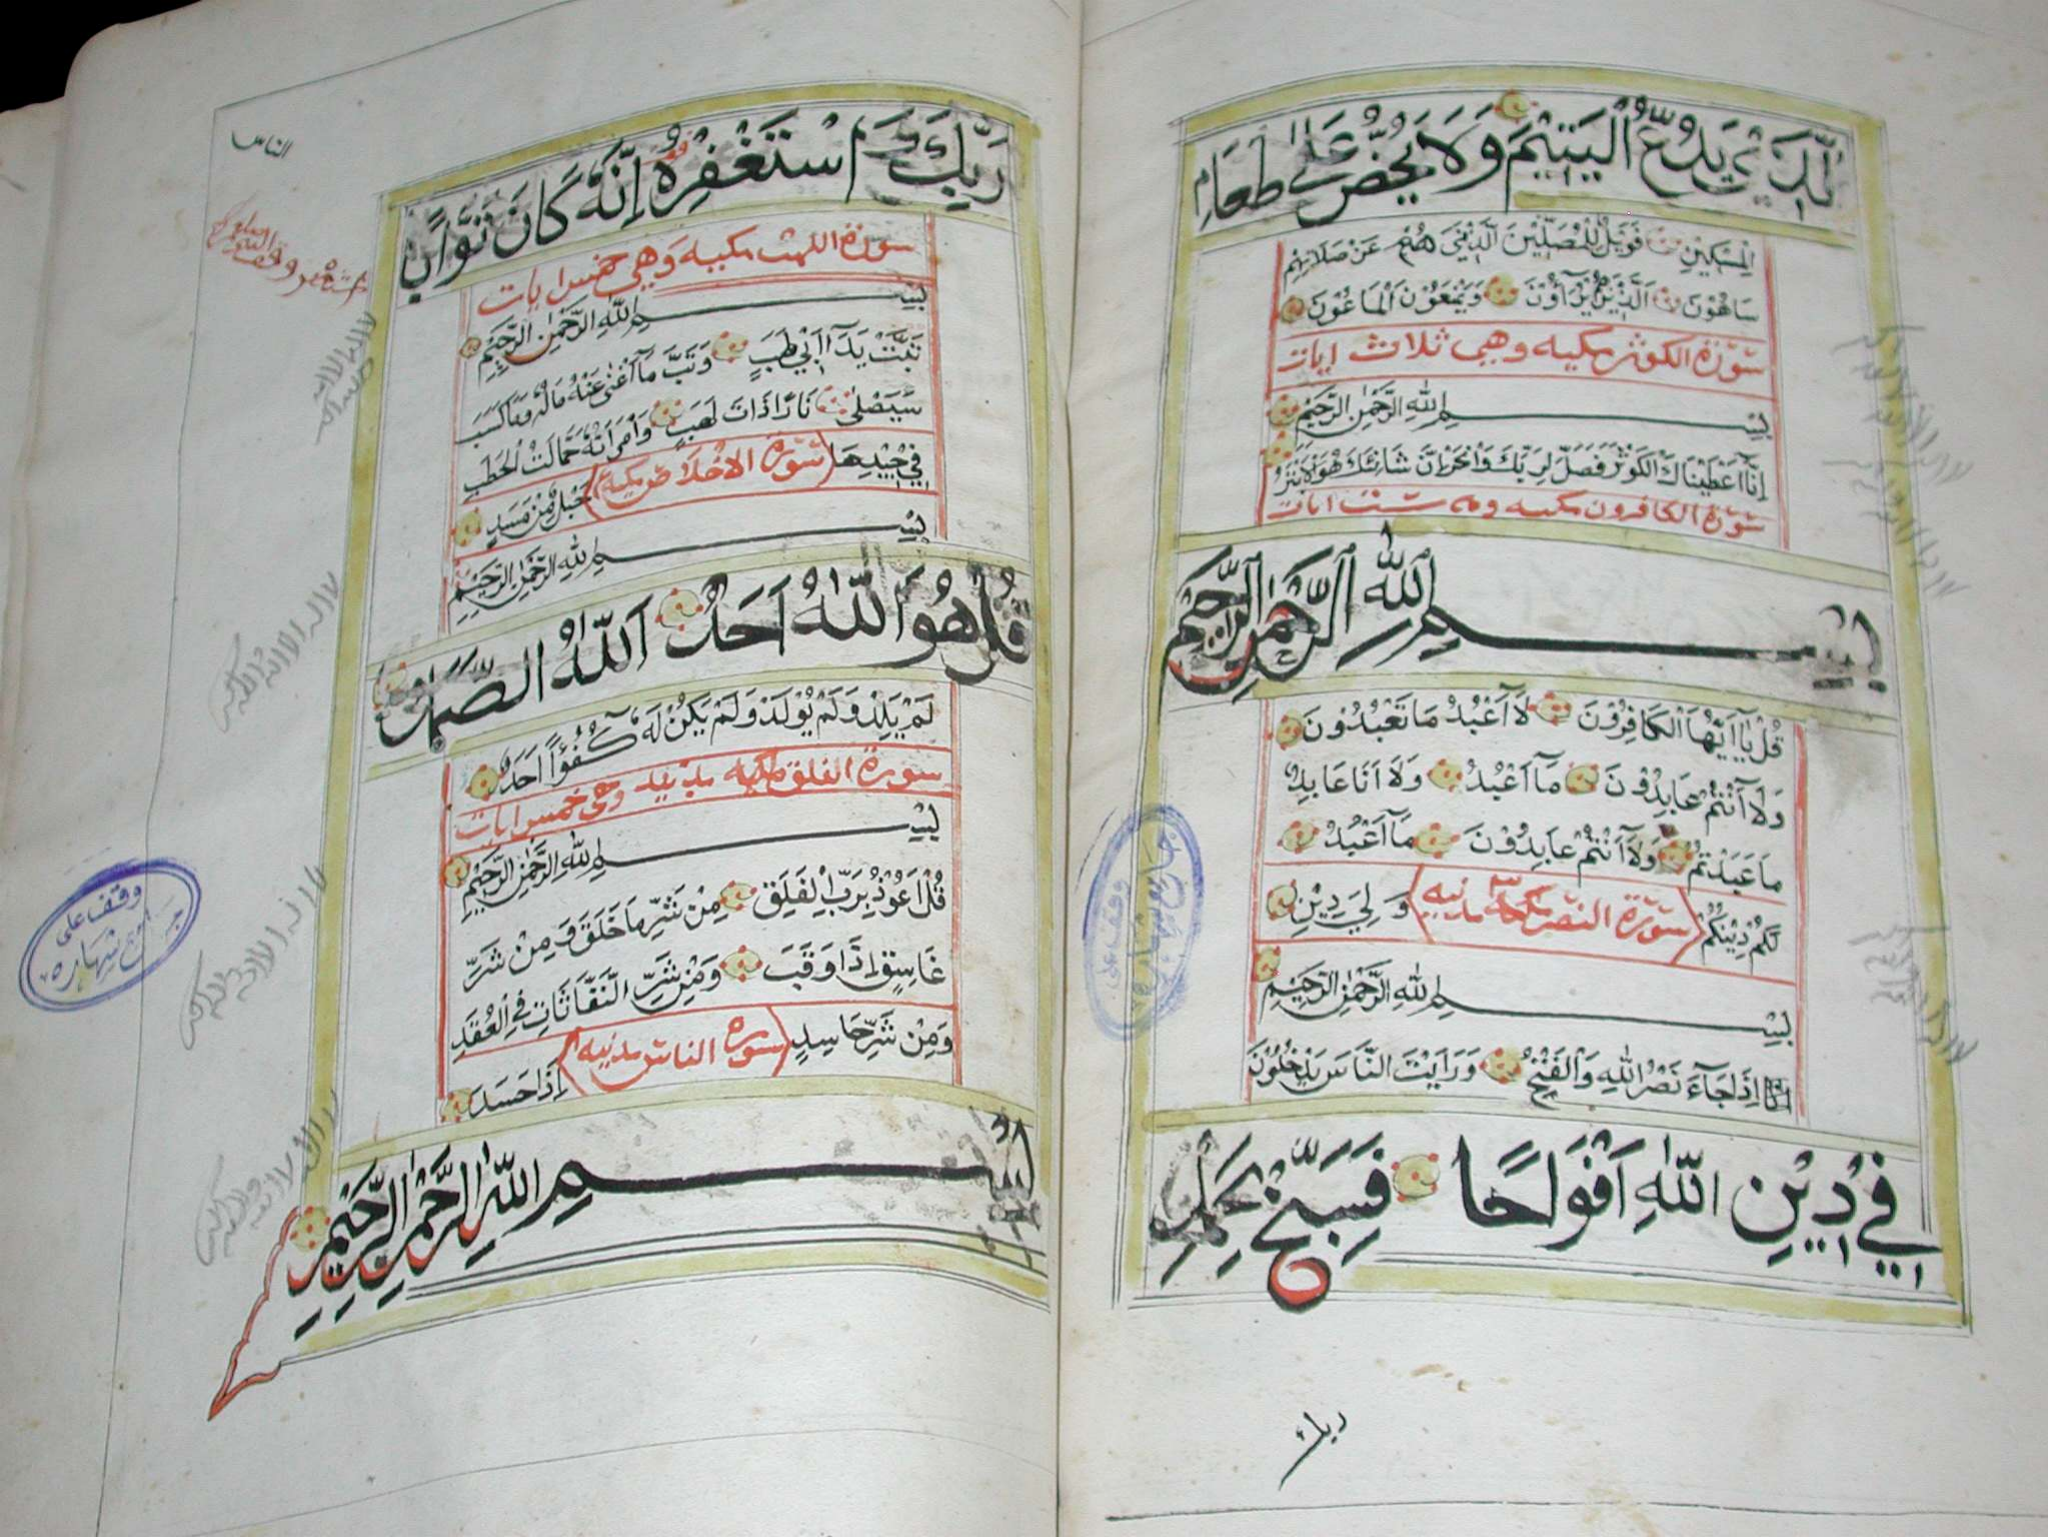 الَّذِيْ يَدُعُّ الْيَتِيْمَ وَلَا يَحُضُّ عَلَىٰ طَعَامِ
الْمِسْكِيْنِ فَوَيْلٌ لِلْمُصَلِّيْنَ الَّذِيْنَ هُمْ عَنْ صَلَاتِهِمْ
سَاهُوْنَ الَّذِيْنَ هُمْ يُرَآؤُنَ وَيَمْنَعُوْنَ الْمَاعُوْنَ
سُوْرَة الكوثر مكيه وهي ثلاث ايات
بِسْمِ اللّٰهِ الرَّحْمٰنِ الرَّحِيْمِ
اِنَّآ اَعْطَيْنَاكَ الْكَوْثَرَ فَصَلِّ لِرَبِّكَ وَانْحَرْ اِنَّ شَانِئَكَ هُوَ الْاَبْتَرُ
سُوْرَة الكافرون مكيه وهي ست ايات
بِسْمِ اللّٰهِ الرَّحْمٰنِ الرَّحِيْمِ
قُلْ يَآ اَيُّهَا الْكَافِرُوْنَ لَآ اَعْبُدُ مَا تَعْبُدُوْنَ
وَلَآ اَنْتُمْ عَابِدُوْنَ مَآ اَعْبُدُ وَلَآ اَنَا عَابِدٌ
مَا عَبَدْتُمْ وَلَآ اَنْتُمْ عَابِدُوْنَ مَآ اَعْبُدُ
لَكُمْ دِيْنُكُمْ وَلِيَ دِيْنِ
سُوْرَة النصر مدنيه
بِسْمِ اللّٰهِ الرَّحْمٰنِ الرَّحِيْمِ
اِذَا جَآءَ نَصْرُ اللّٰهِ وَالْفَتْحُ وَرَاَيْتَ النَّاسَ يَدْخُلُوْنَ
فِيْ دِيْنِ اللّٰهِ اَفْوَاجًا فَسَبِّحْ بِحَمْدِ
ربك
وقف على
جامع شهاره
الناس
رَبِّكَ وَاسْتَغْفِرْهُ اِنَّهٗ كَانَ تَوَّابًا
سورة اللهب مكيه وهي خمس ايات
بِسْمِ اللّٰهِ الرَّحْمٰنِ الرَّحِيْمِ
تَبَّتْ يَدَآ اَبِيْ لَهَبٍ وَتَبَّ مَآ اَغْنٰى عَنْهُ مَالُهٗ وَمَا كَسَبَ
سَيَصْلٰى نَارًا ذَاتَ لَهَبٍ وَامْرَاَتُهٗ حَمَّالَتَ الْحَطَبِ
فِيْ جِيْدِهَا حَبْلٌ مِّنْ مَسَدٍ
سُوْرَة الاخلاص مكيه
بِسْمِ اللّٰهِ الرَّحْمٰنِ الرَّحِيْمِ
قُلْ هُوَ اللّٰهُ اَحَدٌ اَللّٰهُ الصَّمَدُ
لَمْ يَلِدْ وَلَمْ يُوْلَدْ وَلَمْ يَكُنْ لَهٗ كُفُؤًا اَحَدٌ
سورة الفلق مكيه مدنيه وهي خمس ايات
بِسْمِ اللّٰهِ الرَّحْمٰنِ الرَّحِيْمِ
قُلْ اَعُوْذُ بِرَبِّ الْفَلَقِ مِنْ شَرِّ مَا خَلَقَ وَمِنْ شَرِّ
غَاسِقٍ اِذَا وَقَبَ وَمِنْ شَرِّ النَّفَّاثَاتِ فِي الْعُقَدِ
وَمِنْ شَرِّ حَاسِدٍ اِذَا حَسَدَ
سورة الناس مدنيه
بِسْمِ اللّٰهِ الرَّحْمٰنِ الرَّحِيْمِ
وقف على
جامع شهاره